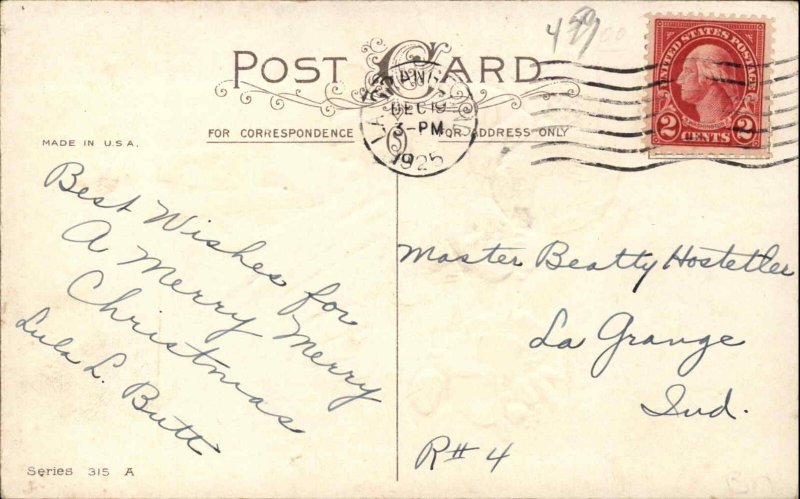 4 99
POST CARD
LAGRANGE IND
DEC 19
3-PM
1925
UNITED STATES POSTAGE
2 CENTS 2
FOR CORRESPONDENCE
FOR ADDRESS ONLY
MADE IN U.S.A.
Best Wishes for
A Merry Merry
Christmas
Lula L. Butt
Master Beatty Hostetler
La Grange
Ind.
R# 4
Series 315 A